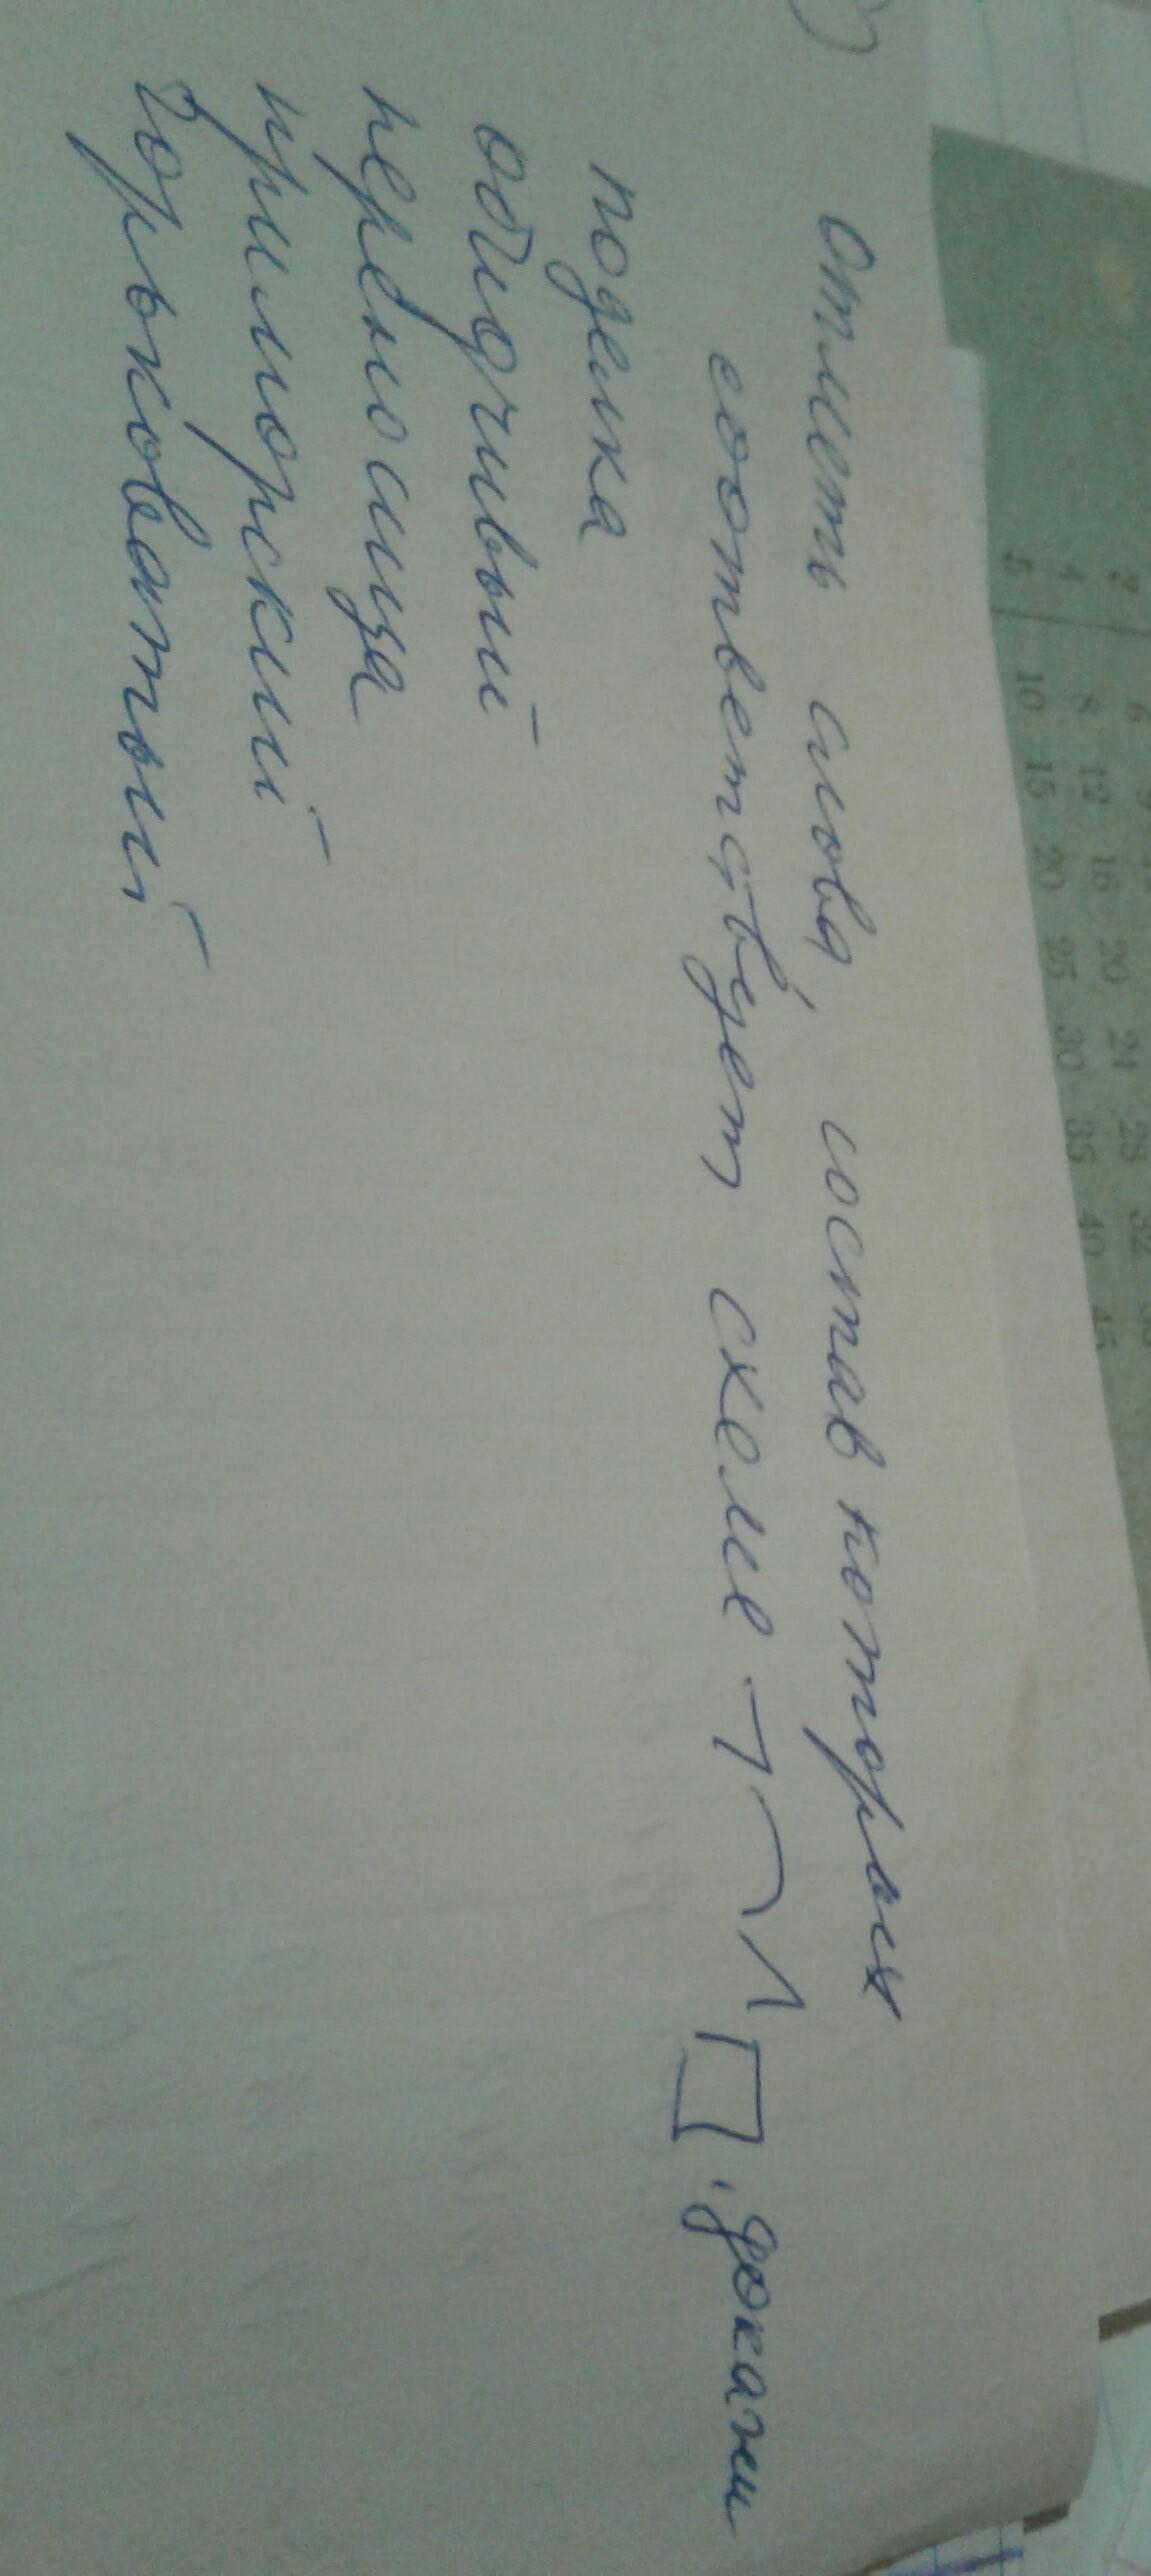 Отметь слова, состав которых
соответствует схеме ¬⌒^□. докажи
поделка
обидчивый
переносица
приморский
горьковатый
6 9 12
4 8 12 16 20 24 28 32
5 10 15 20 25 30 35 40 45